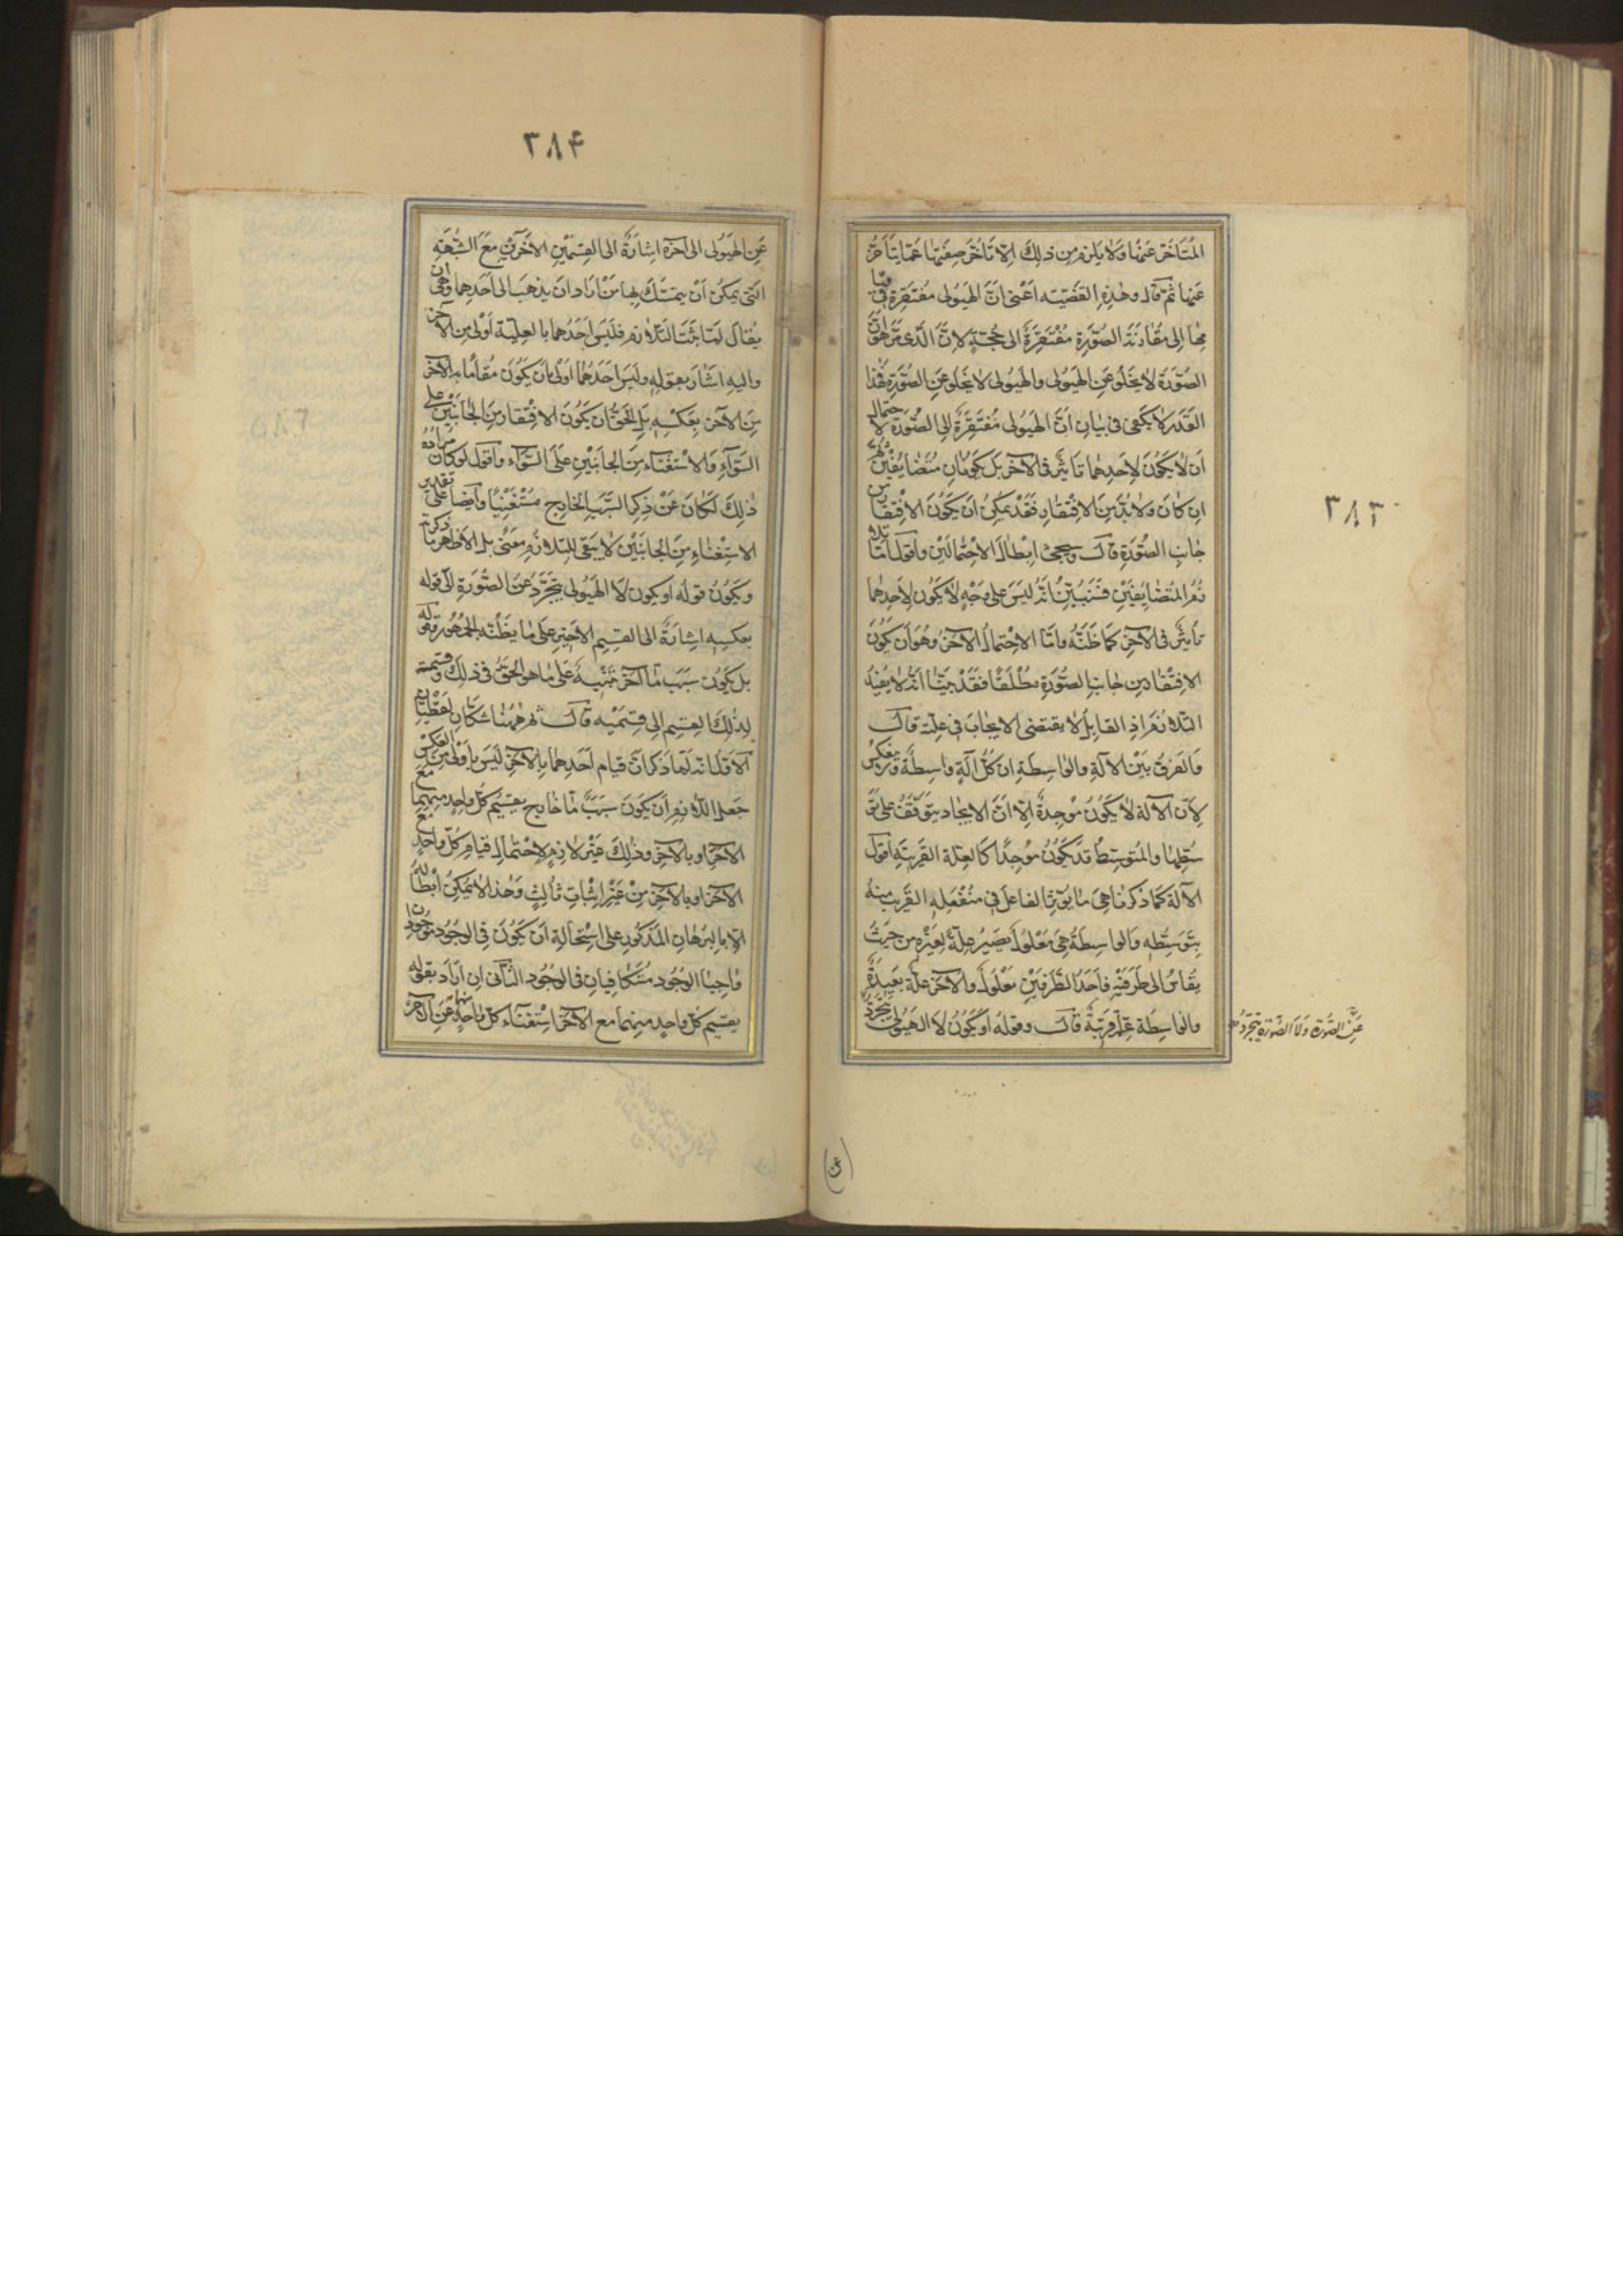 ٣٨٣
المتأخر عنها ولا يلزم من ذلك الا تأخر صفتها عما يتأخر
عنها ثم قال وهذه القضية اعنى ان الهيولى مفتقرة فى قيا
مها الى مقارنة الصورة مفتقرة الى حجة لان الذى مر هو ان
الصورة لا يخلو عن الهيولى والهيولى لا يخلو عن الصورة فهذا
القدر لا يكفى فى بيان ان الهيولى مفتقرة الى الصورة لاحتمال
ان لا يكون لاحدهما تاثير فى الآخر بل يكونان متضايفين ثم
ان كان ولا بد من الافتقار فقد يمكن ان يكون الافتقار من
جانب الصورة قال وسيجئ ابطال الاحتمالين واقول اما تلا
زم المتضايفين فسنبين انه ليس على وجه لا يكون لاحدهما
تاثير فى الآخر كما ظنه واما الاحتمال الآخر وهو ان يكون
الافتقار من جانب الصورة مطلقا فقد بينا انه لا يفيد
التلازم اذ القابل لا يقتضى الايجاب فى علته قال
والفرق بين الآلة والواسطة ان كل آلة واسطة ولا ينعكس
لان الآلة لا يكون موجدة الا ان الايجاد يتوقف على تو
سطها والمتوسط قد يكون موجدا كالعلة القريبة اقول
الآلة كما ذكرنا هى ما يؤثر الفاعل فى منفعله القريب منه
بتوسطه والواسطة هى معلول يصير علة لغيره من حيث
يقاس الى طرفيه فاحد الطرفين معلول والآخر علة بعيدة
والواسطة علة قريبة قال وقوله او يكون لا الهيولى يتجرد
عن الصورة ولا الصورة يتجرد
(عن)
٣٨۴
عن الهيولى الى آخره اشارة الى القسمين الآخرين مع الشبهة
التى يمكن ان يتمسك بها من اراد ان يذهب الى احدهما وهى ان
يقال لما ثبت التلازم فليس احدهما بالعلية اولى من الآخر
واليه اشار بقوله وليس احدهما اولى بان يكون مقاما به الآخر
من الآخر بعكسه بل الحق ان يكون الافتقار من الجانبين على
السواء والاستغناء من الجانبين على السواء واقول لو كان مراده
ذلك لكان عن ذكر السبب الخارج مستغنيا وايضا على تقدير
الاستغناء من الجانبين لا يبقى للتلازم معنى بل الاظهر ما ذكرته
ويكون قوله او يكون لا الهيولى يتجرد عن الصورة الى قوله
بعكسه اشارة الى القسم الاخير على ما يظنه الجمهور وقوله
بل يكون سبب ما آخر تنبيه على ما هو الحق فى ذلك وقسمته
لذلك القسم الى قسميه قال ثم ههنا شكان لفظيان
الاول انه لما ذكر ان قيام احدهما بالآخر ليس باولى من العكس
جعل اللازم ان يكون سببا ما خارج يقيم كل واحد منهما مع
الآخر او بالآخر وذلك غير لازم لاحتمال قيام كل واحد مع
الآخر او بالآخر من غير اثبات ثالث وهذا لا يمكن ابطاله
الا بالبرهان المذكور على استحالة ان يكون فى الوجود موجودان
واجبا الوجود متكافيان فى الوجود الثانى ان اراد بقوله
يقيم كل واحد منهما مع الآخر استغناء كل واحد منهما عن الآخر